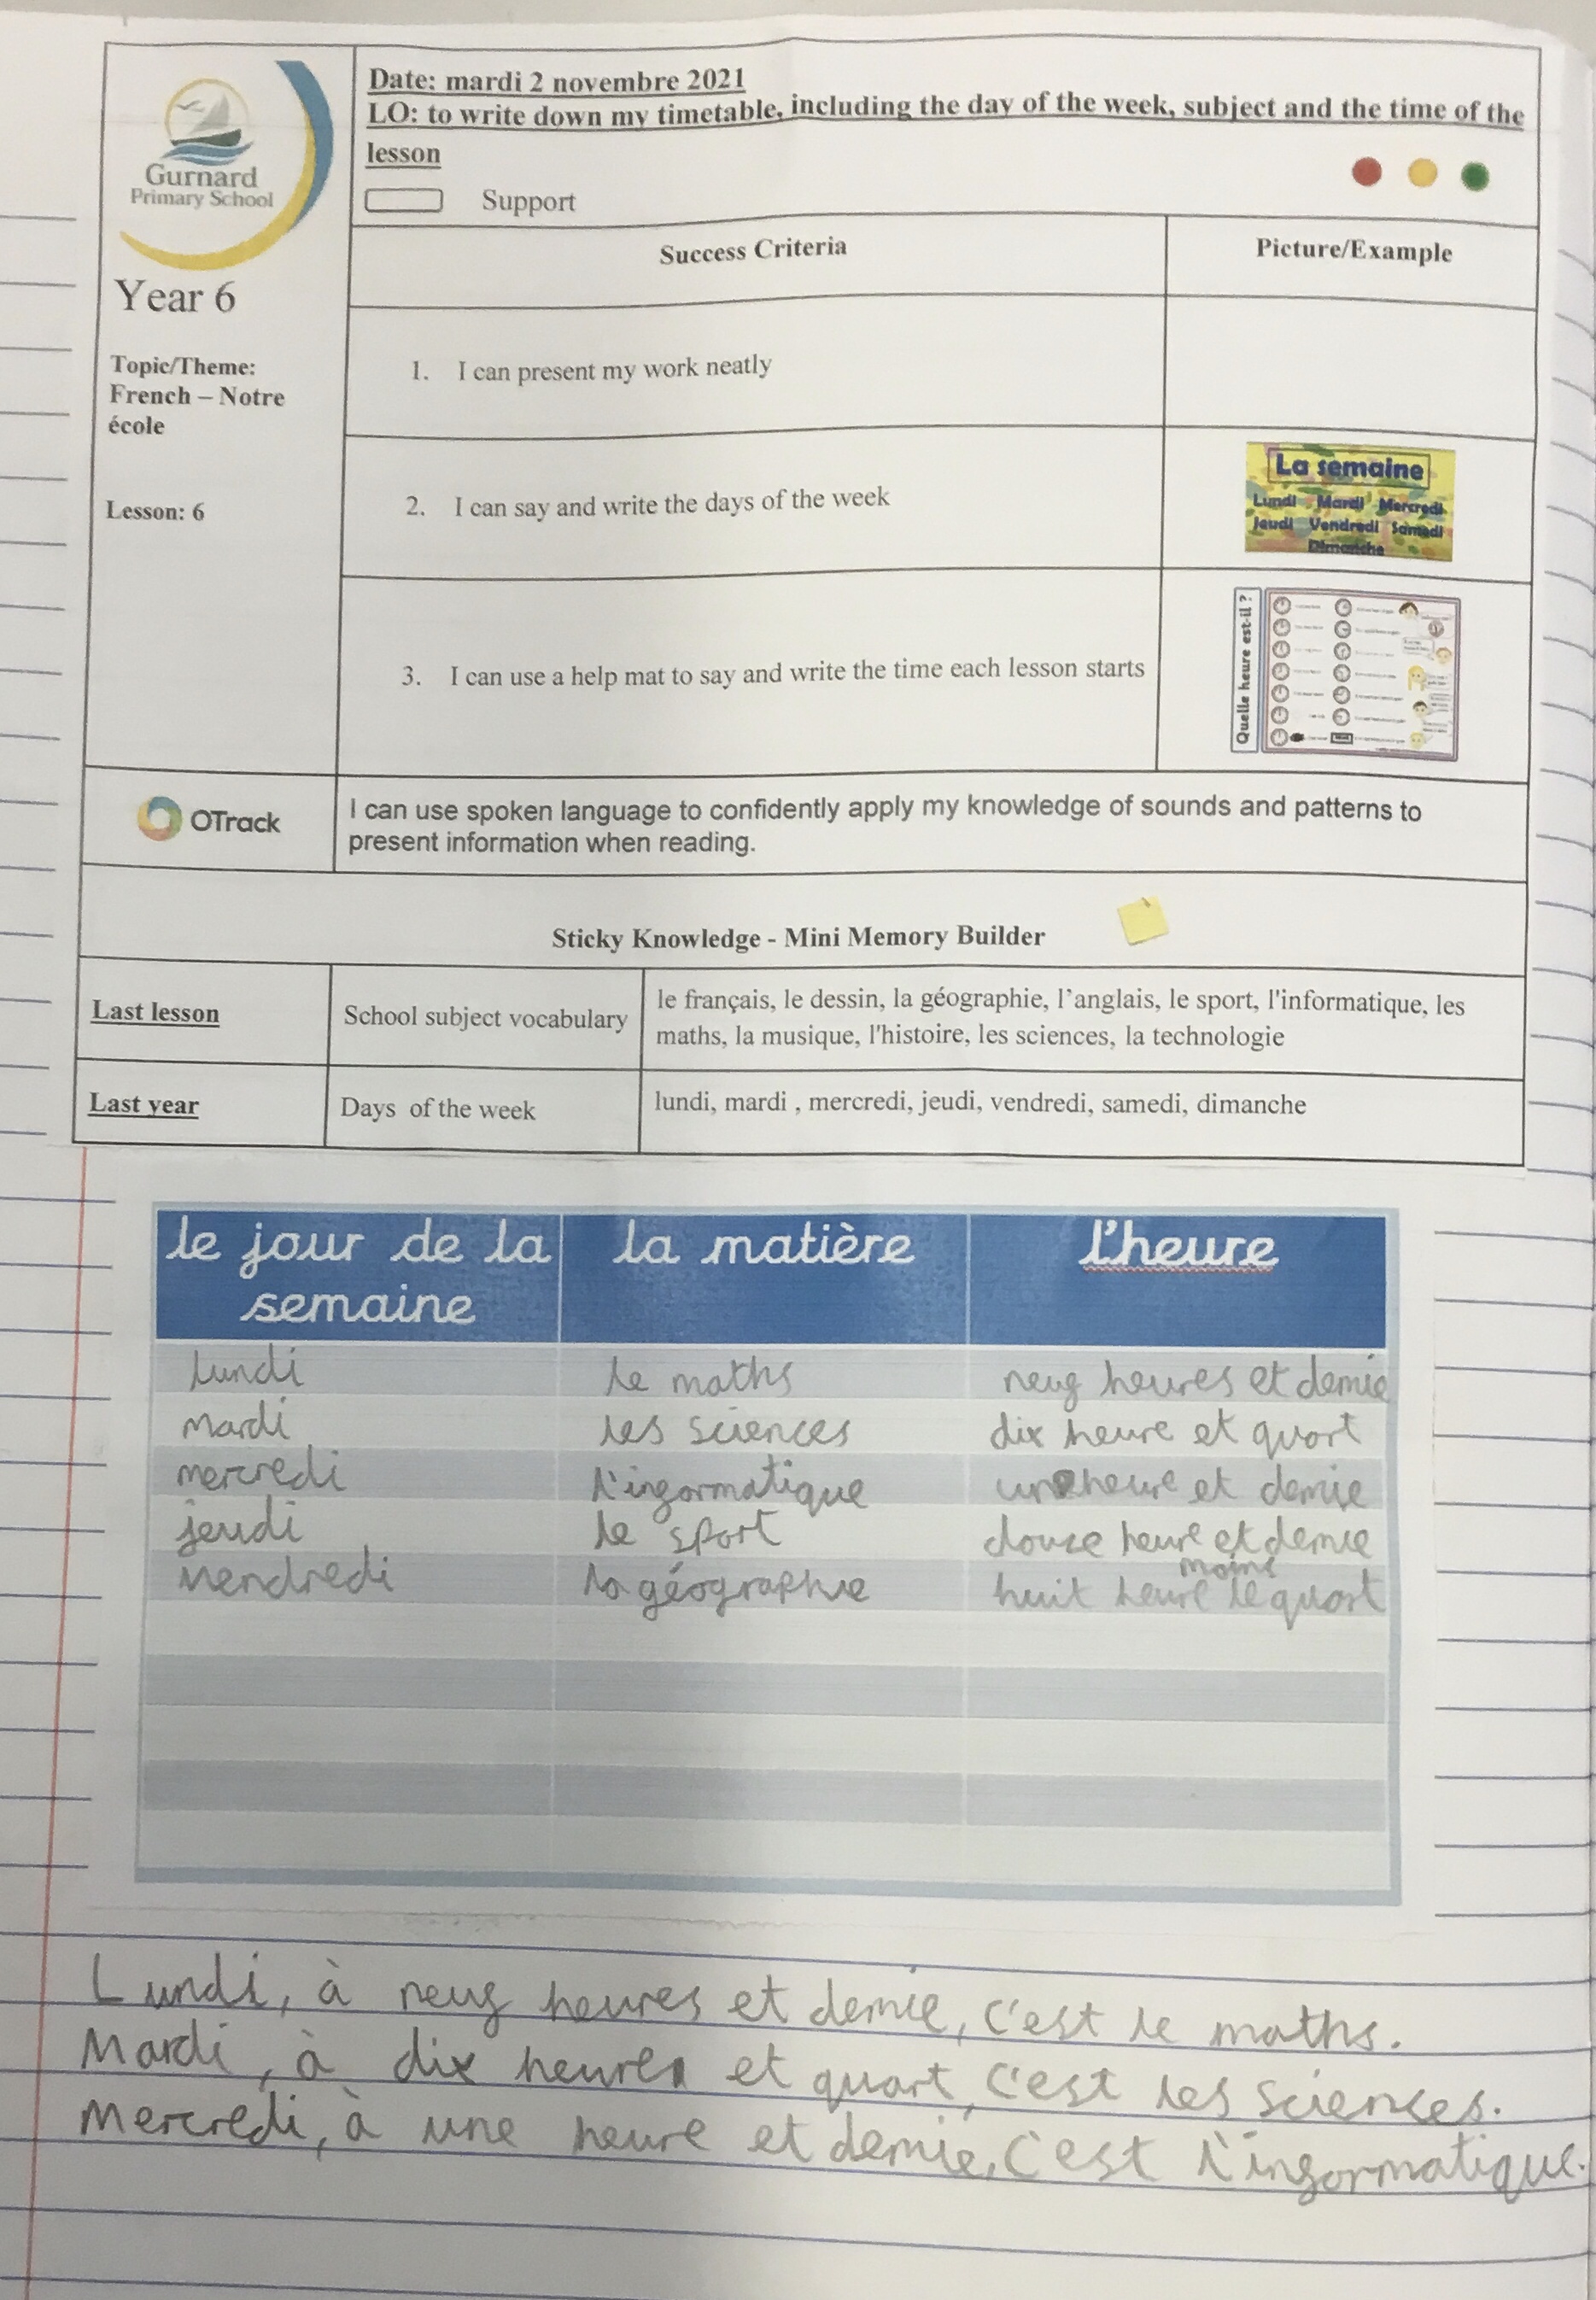 Gurnard
Primary School
Year 6
Topic/Theme:
French – Notre
école
Lesson: 6
Date: mardi 2 novembre 2021
LO: to write down my timetable, including the day of the week, subject and the time of the
lesson
Support
Success Criteria
Picture/Example
1. I can present my work neatly
2. I can say and write the days of the week
La semaine
Lundi Mardi Mercredi
Jeudi Vendredi Samedi
Dimanche
3. I can use a help mat to say and write the time each lesson starts
Quelle heure est-il ?
OTrack
I can use spoken language to confidently apply my knowledge of sounds and patterns to
present information when reading.
Sticky Knowledge - Mini Memory Builder
Last lesson
School subject vocabulary
le français, le dessin, la géographie, l'anglais, le sport, l'informatique, les
maths, la musique, l'histoire, les sciences, la technologie
Last year
Days of the week
lundi, mardi , mercredi, jeudi, vendredi, samedi, dimanche
le jour de la
semaine
la matière
l'heure
lundi le maths neuf heures et demie
mardi les sciences dix heure et quart
mercredi l'informatique une heure et demie
jeudi le sport douze heure et demie
vendredi la géographie huit heure moins le quart
Lundi, à neuf heures et demie, c'est le maths.
Mardi, à dix heures et quart, c'est les sciences.
Mercredi, à une heure et demie, c'est l'informatique.